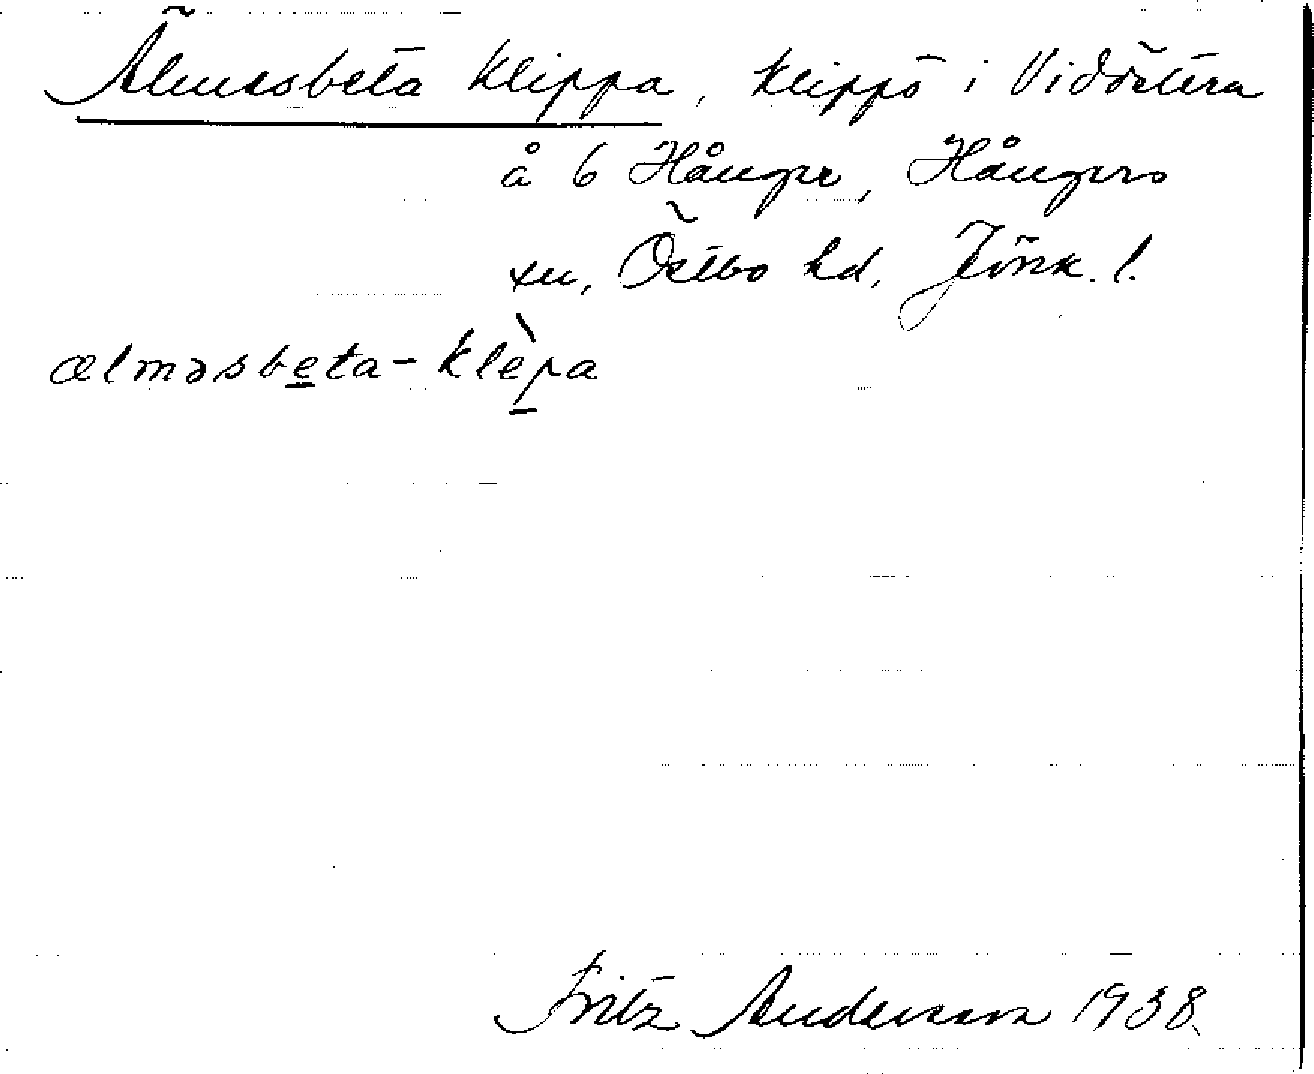 Älmesbeta klippa, klippö i Vidöstern
å 6 Hånger, Hångers
sn, Östbo hd, Jönk. l.
ælməsbeta-klèpa
Fritz Andersson 1938.